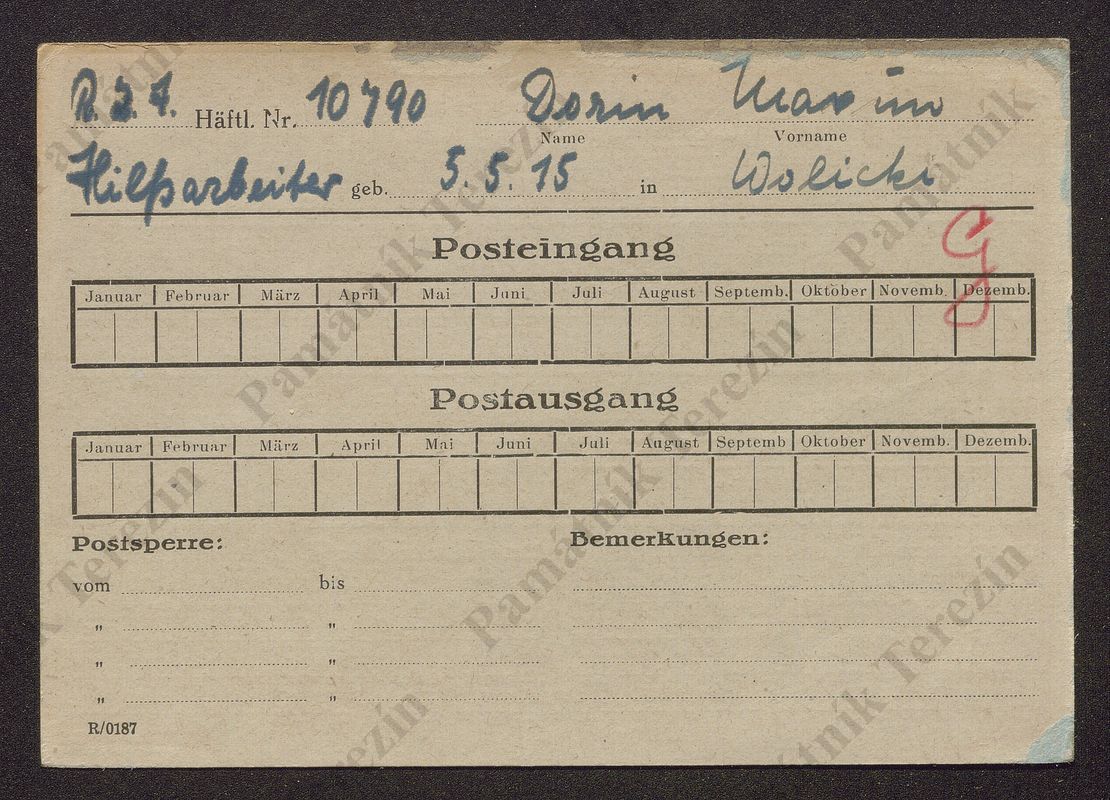 R. Z. A. Häftl. Nr. 10790 Dorin Maxim
Name Vorname
Hilfsarbeiter geb. 5. 5. 15 in Wolicki
Posteingang
G
Januar Februar März April Mai Juni Juli August Septemb. Oktober Novemb. Dezemb.
Postausgang
Januar Februar März April Mai Juni Juli August Septemb Oktober Novemb. Dezemb.
Postsperre: Bemerkungen:
vom bis
" "
" "
" "
R/0187
Památník Terezín